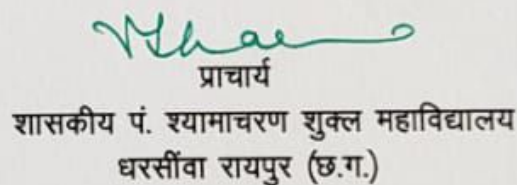 प्राचार्य
शासकीय पं. श्यामाचरण शुक्ल महाविद्यालय
धरसींवा रायपुर (छ.ग.)